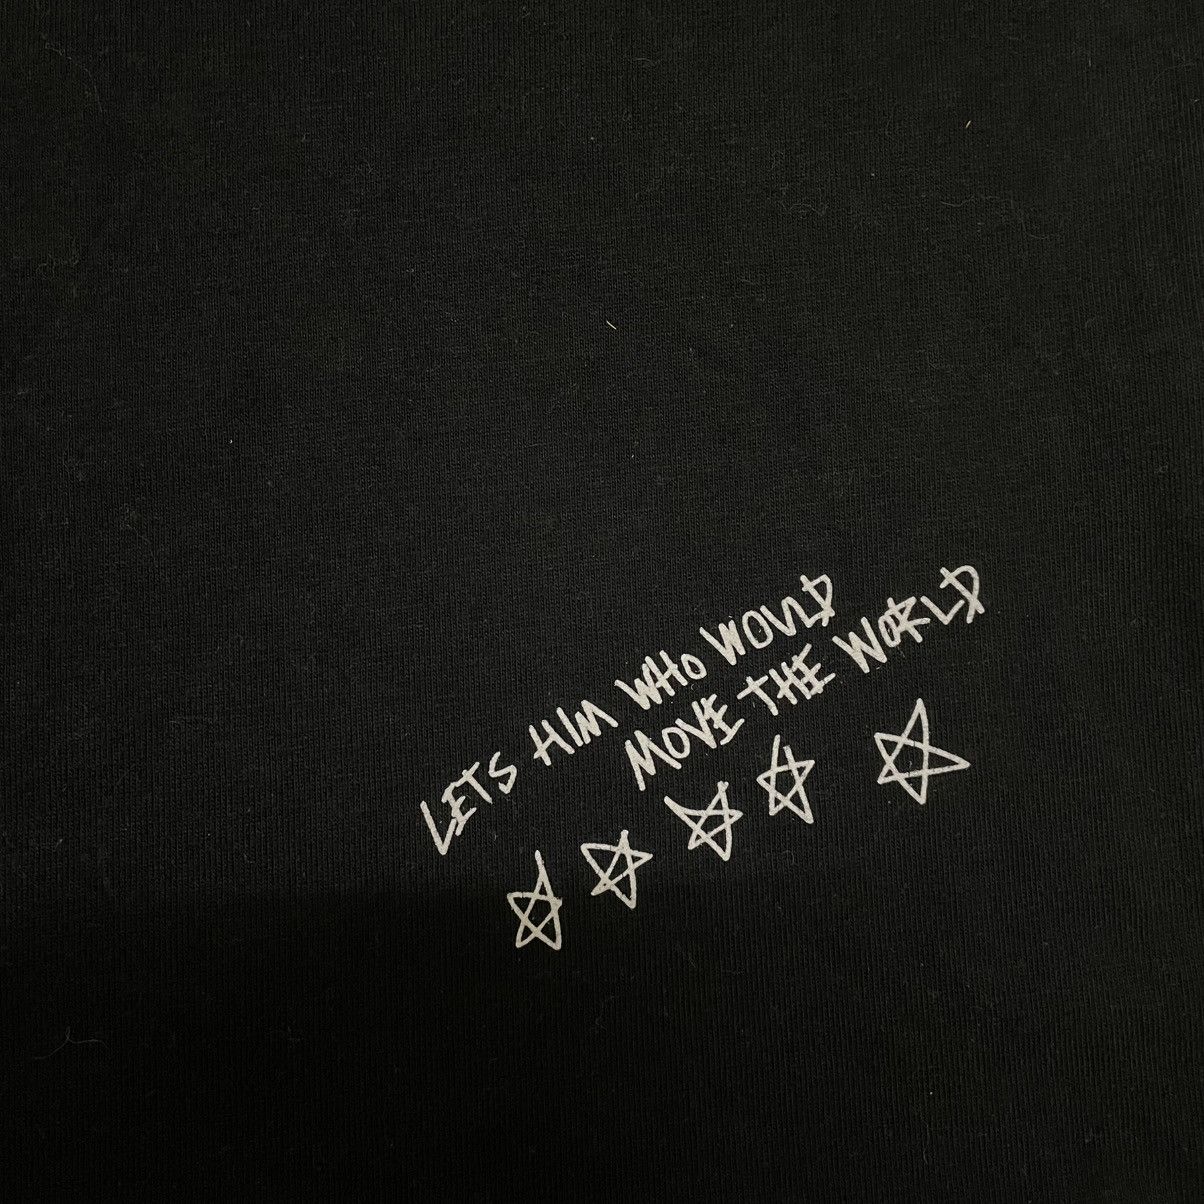 LETS HIM WHO WOULD
MOVE THE WORLD